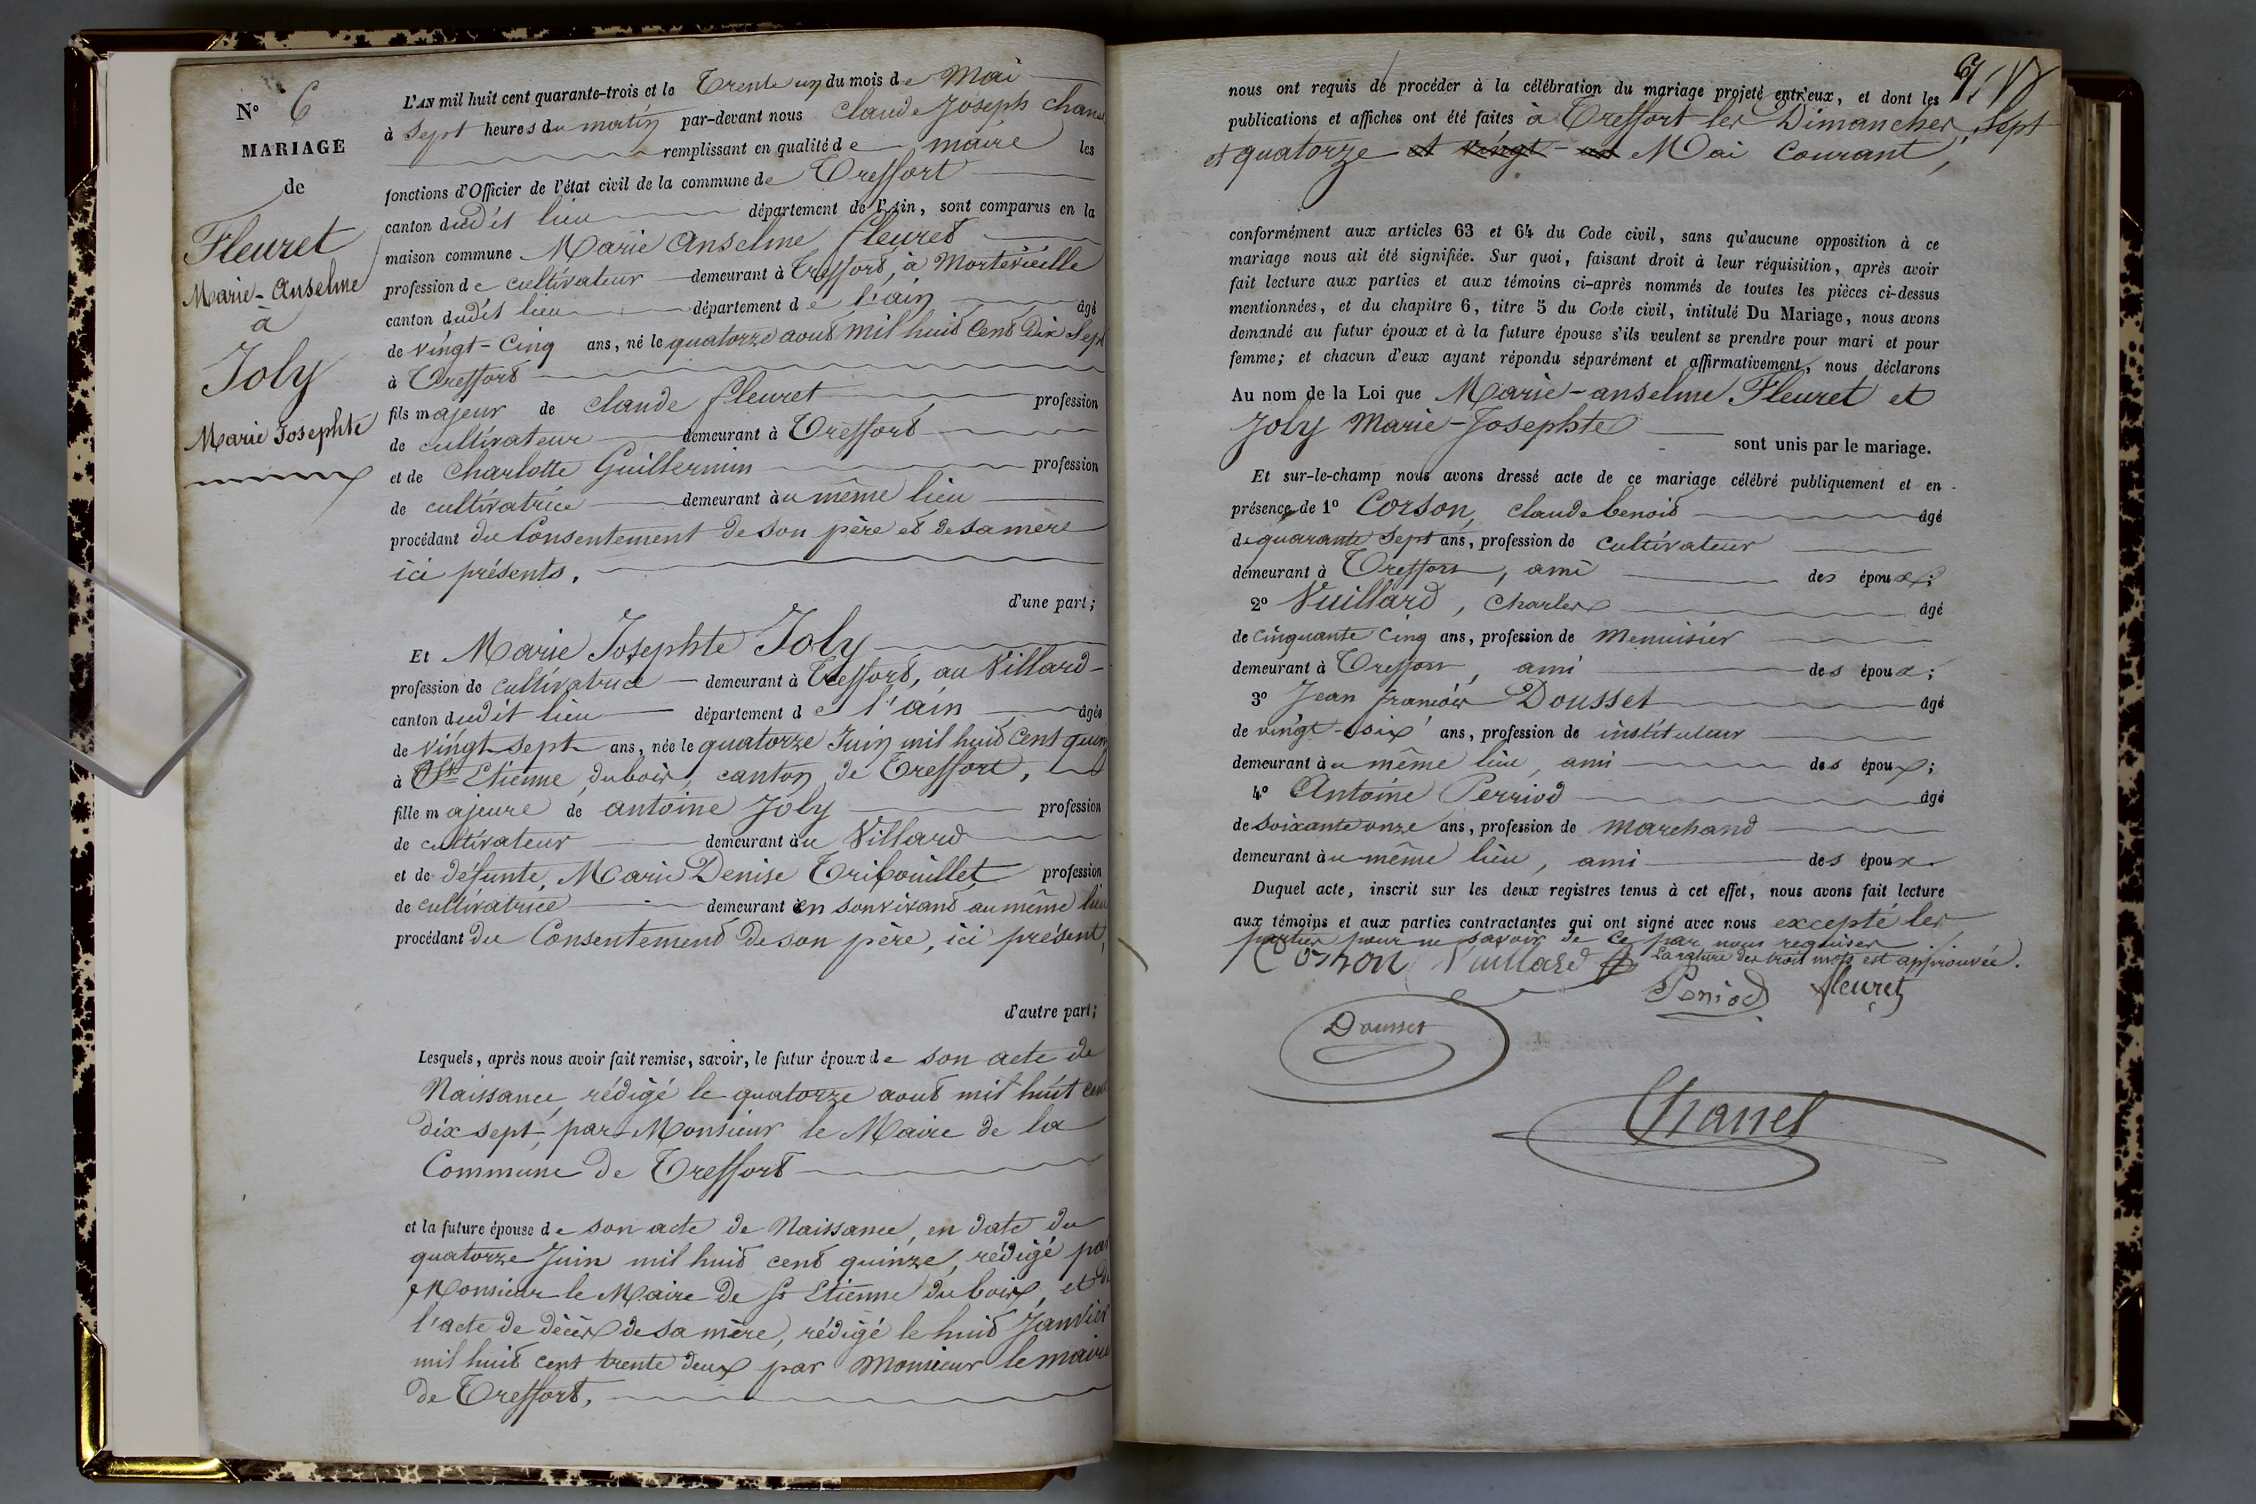 N° 6
MARIAGE
de
Fleuret
Marie-Anselme
à
Joly
Marie Josephte
L'AN mil huit cent quarante-trois et le Trente un du mois de Mai
à Sept heures du matin par-devant nous Claude Joseph Chanel
remplissant en qualité de maire les
fonctions d'Officier de l'état civil de la commune de Treffort
canton dudit lieu département de l'Ain, sont comparus en la
maison commune Marie Anselme fleuret
profession de cultivateur demeurant à Treffort, à Mortevieille
canton dudit lieu département de l'ain âgé
de vingt-cinq ans, né le quatorze aout mil huit Cent Dix Sept
à Treffort
fils majeur de claude fleuret profession
de cultivateur demeurant à Treffort
et de Charlotte Guillermin profession
de cultivatrice demeurant au même lieu
procédant du Consentement de son père et de sa mère
ici présents.
d'une part;
Et Marie Josephte Joly
profession de cultivatrice demeurant à Treffort, au Villard
canton dudit lieu département de l'ain âgée
de vingt-sept ans, née le quatorze Juin mil huit Cent quinze
à St Etienne du bois, canton de Treffort,
fille majeure de antoine Joly profession
de cultivateur demeurant au Villard
et de défunte, Marie Denise Tribouillet profession
de cultivatrice demeurant en son vivant au même lieu
procédant du Consentement de son père, ici présent,
d'autre part;
Lesquels, après nous avoir fait remise, savoir, le futur époux de son acte de
Naissance rédigé le quatorze aout mil huit cent
dix sept, par Monsieur le Maire de la
Commune de Treffort
et la future épouse de son acte de Naissance, en date du
quatorze Juin mil huit cent quinze, rédigé par
Monsieur le Maire de St Etienne du bois, et de
l'acte de décès de sa mère, rédigé le huit Janvier
mil huit cent trente deux par Monsieur le maire
de Treffort.
nous ont requis de procéder à la célébration du mariage projeté entr'eux, et dont les
publications et affiches ont été faites à Treffort les Dimanches, Sept
et quatorze et vingt-un Mai Courant,
conformément aux articles 63 et 64 du Code civil, sans qu'aucune opposition à ce
mariage nous ait été signifiée. Sur quoi, faisant droit à leur réquisition, après avoir
fait lecture aux parties et aux témoins ci-après nommés de toutes les pièces ci-dessus
mentionnées, et du chapitre 6, titre 5 du Code civil, intitulé Du Mariage, nous avons
demandé au futur époux et à la future épouse s'ils veulent se prendre pour mari et pour
femme; et chacun d'eux ayant répondu séparément et affirmativement, nous déclarons
Au nom de la Loi que Marie-anselme Fleuret et
Joly Marie-Josephte
sont unis par le mariage.
Et sur-le-champ nous avons dressé acte de ce mariage célébré publiquement et en
présence de 1° Corson, claude benoit âgé
de quarante Sept ans, profession de Cultivateur
demeurant à Treffort, ami des époux;
2° Vuillard, Charles âgé
de cinquante Cinq ans, profession de menuisier
demeurant à Treffort, ami des époux;
3° Jean françois Dousset âgé
de vingt-six ans, profession de instituteur
demeurant au même lieu, ami des époux;
4° Antoine Perriod âgé
de soixante onze ans, profession de marchand
demeurant au même lieu, ami des époux
Duquel acte, inscrit sur les deux registres tenus à cet effet, nous avons fait lecture
aux témoins et aux parties contractantes qui ont signé avec nous excepté les
parties pour ne savoir de ce par nous requises
La rature des trois mots est approuvée.
Corson Vuillard
Period fleuret
Dousset
Chanel